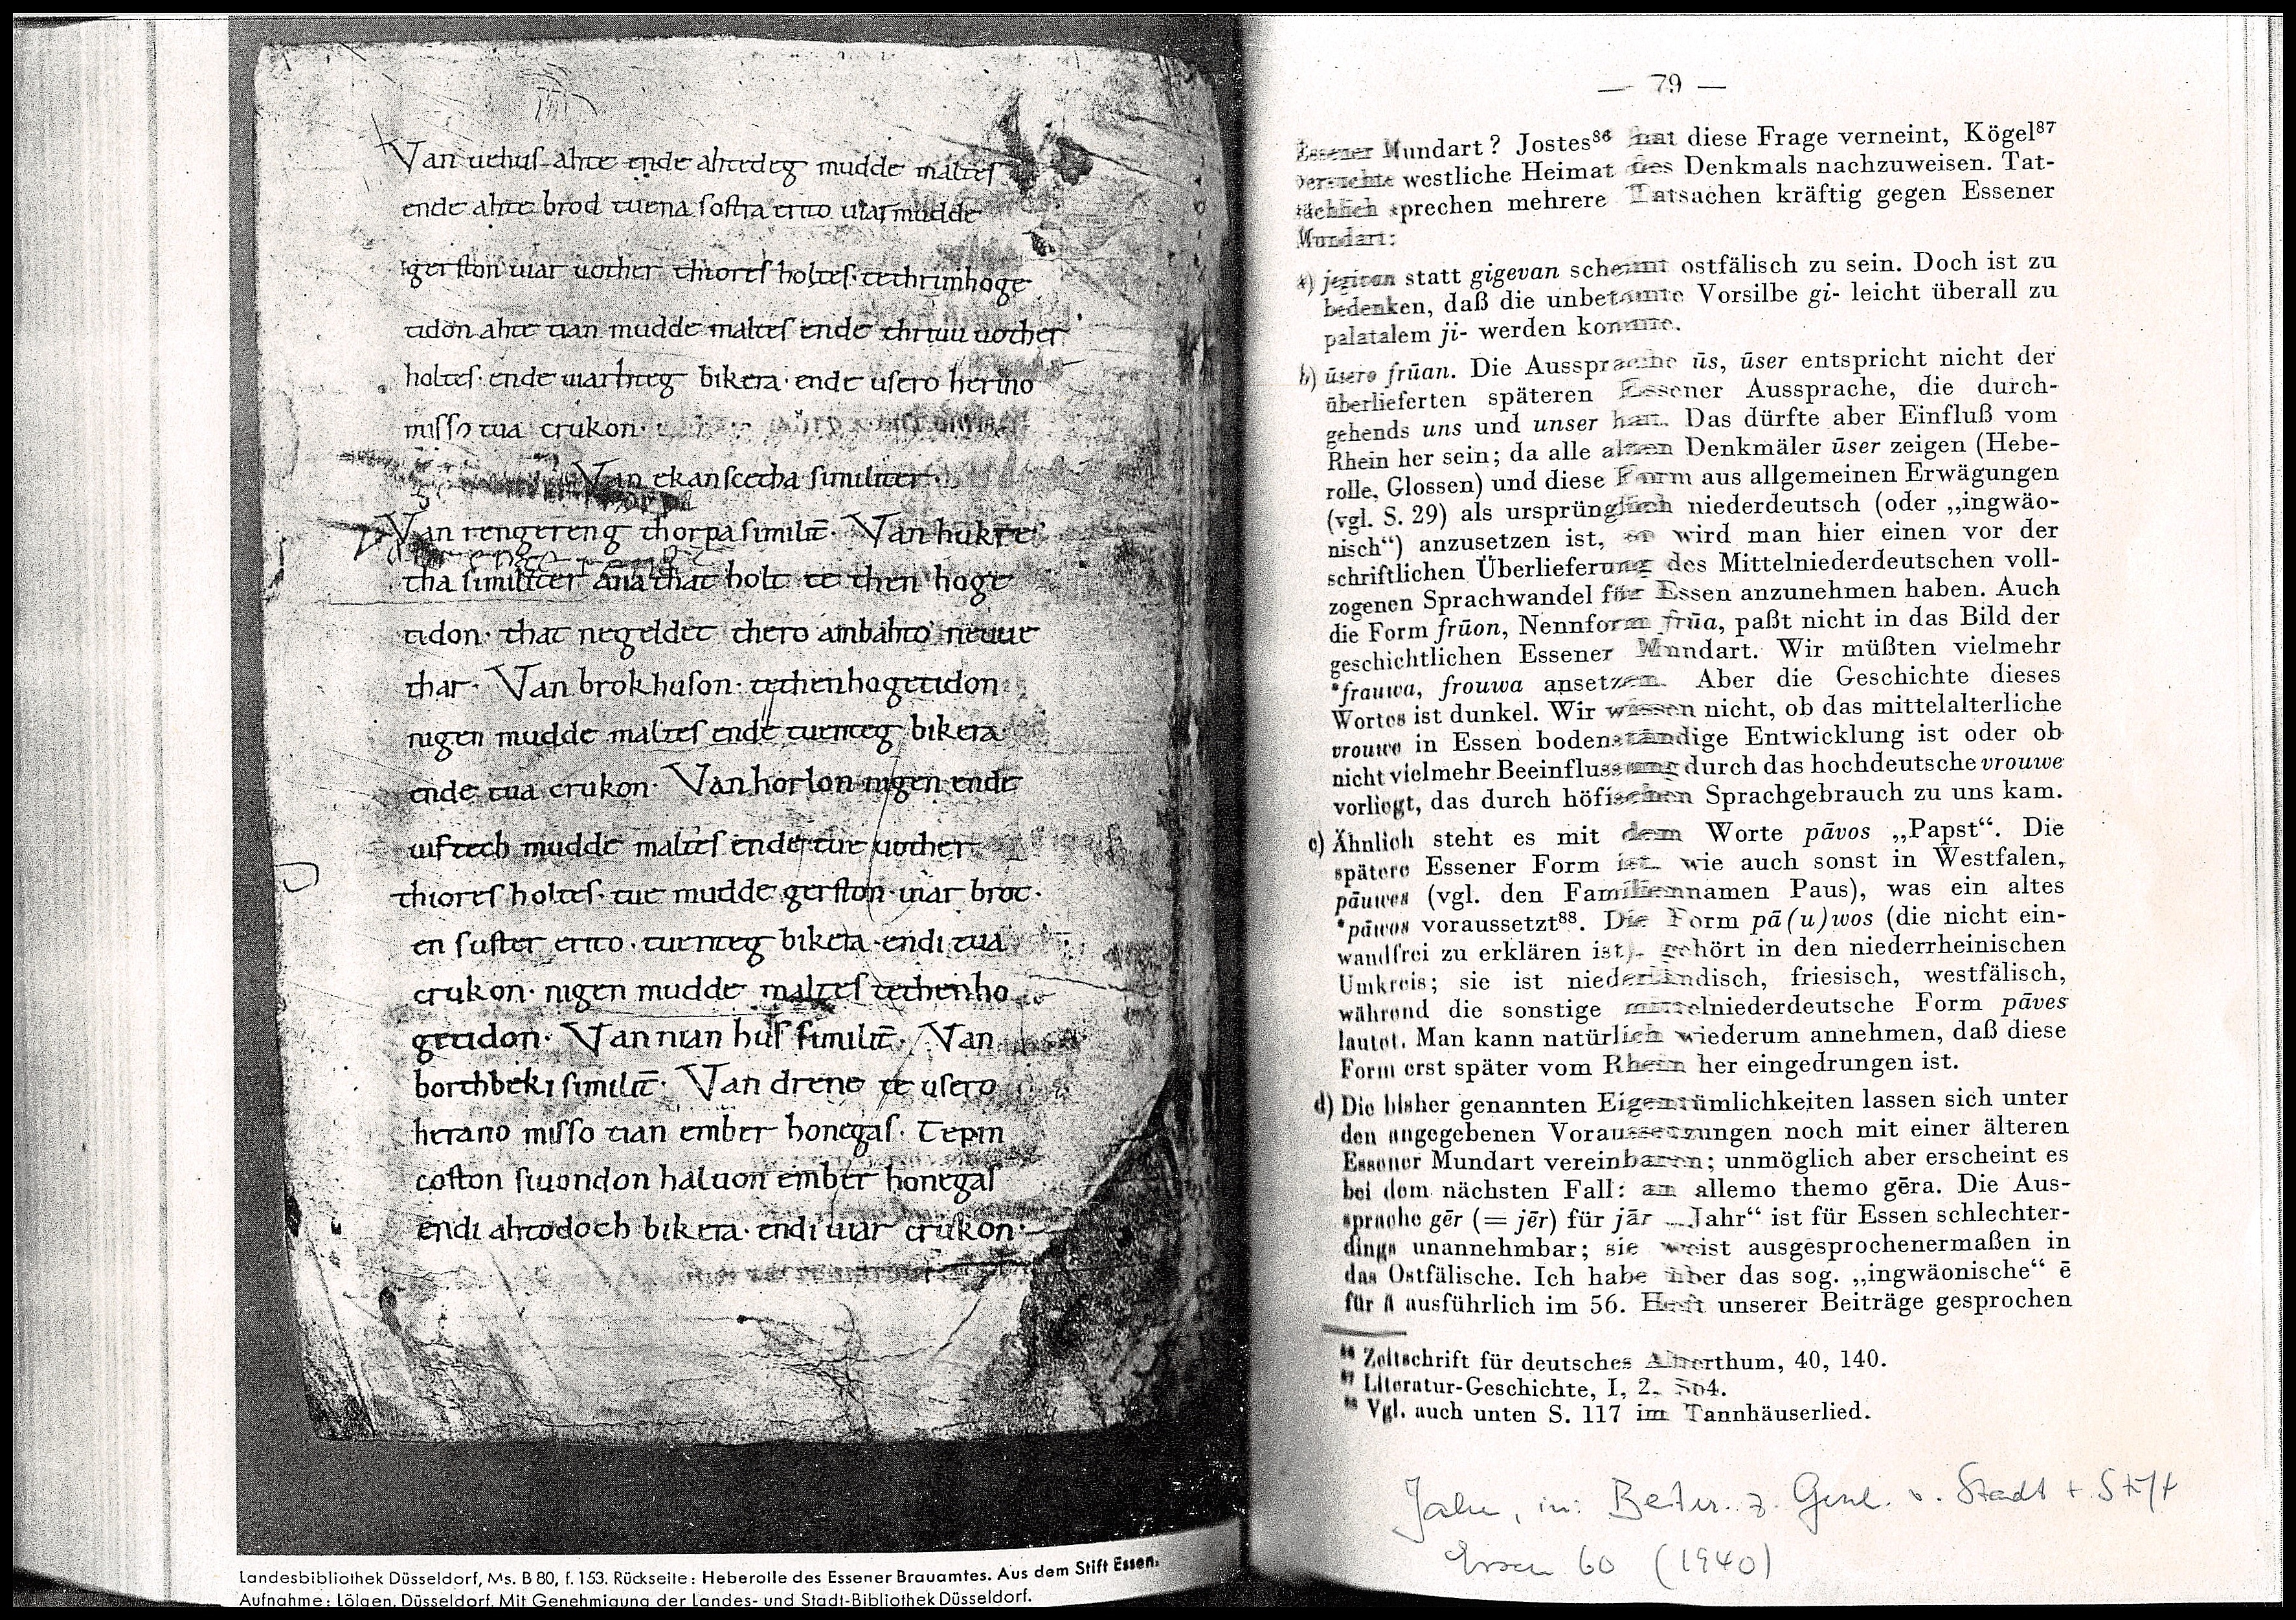 Van uehus ahte ende ahtedeg mudde maltes
ende ahte brod tuena sostra erito uiar mudde
gerston uiar uother thiores holtes. te thrim hoge
tidon ahte tian mudde maltes ende thriuu uother
holtes. ende uiarhteg bikera. ende usero herino
misso tua crukon.
Van ekanscetha similiter.
Van rengereng thorpa similit̄. Van hukre
tha similiter ana that holt te then hoge
tidon. that negeldet thero ambahto neuue
thar. Van brokhuson. te then hogetidon
nigen mudde maltes ende tuenteg bikera
ende tua crukon. Van horlon nigen ende
uiftech mudde maltes ende tue uother
thiores holtes. tue mudde gerston. uiar brot.
en suster erito. tuenteg bikera. endi tua
crukon. nigen mudde maltes te then ho
getidon. Van nian hus similit̄. Van
borthbeki similit̄. Van drene te usero
herano misso tian ember honegas. Te pin
coston siuondon haluon ember honegas
endi ahtodoch bikera. endi uiar crukon.
Landesbibliothek Düsseldorf, Ms. B 80, f. 153. Rückseite: Heberolle des Essener Brauamtes. Aus dem Stift Essen.
Aufnahme: Lölgen, Düsseldorf. Mit Genehmigung der Landes- und Stadt-Bibliothek Düsseldorf.
— 79 —
Essener Mundart? Jostes⁸⁶ hat diese Frage verneint, Kögel⁸⁷
versuchte westliche Heimat des Denkmals nachzuweisen. Tat-
sächlich sprechen mehrere Tatsachen kräftig gegen Essener
Mundart:
a) jegivan statt gigevan scheint ostfälisch zu sein. Doch ist zu
bedenken, daß die unbetonte Vorsilbe gi- leicht überall zu
palatalem ji- werden konnte.
b) ūsero frūan. Die Aussprache ūs, ūser entspricht nicht der
überlieferten späteren Essener Aussprache, die durch-
gehends uns und unser hat. Das dürfte aber Einfluß vom
Rhein her sein; da alle alten Denkmäler ūser zeigen (Hebe-
rolle, Glossen) und diese Form aus allgemeinen Erwägungen
(vgl. S. 29) als ursprünglich niederdeutsch (oder „ingwäo-
nisch“) anzusetzen ist, so wird man hier einen vor der
schriftlichen Überlieferung des Mittelniederdeutschen voll-
zogenen Sprachwandel für Essen anzunehmen haben. Auch
die Form frūon, Nennform frūa, paßt nicht in das Bild der
geschichtlichen Essener Mundart. Wir müßten vielmehr
*frauwa, frouwa ansetzen. Aber die Geschichte dieses
Wortes ist dunkel. Wir wissen nicht, ob das mittelalterliche
vrouwe in Essen bodenständige Entwicklung ist oder ob
nicht vielmehr Beeinflussung durch das hochdeutsche vrouwe
vorliegt, das durch höfischen Sprachgebrauch zu uns kam.
c) Ähnlich steht es mit dem Worte pāvos „Papst“. Die
spätere Essener Form ist, wie auch sonst in Westfalen,
pāuwes (vgl. den Familiennamen Paus), was ein altes
*pāwos voraussetzt⁸⁸. Die Form pā(u)wos (die nicht ein-
wandfrei zu erklären ist), gehört in den niederrheinischen
Umkreis; sie ist niederländisch, friesisch, westfälisch,
während die sonstige mittelniederdeutsche Form pāves
lautet. Man kann natürlich wiederum annehmen, daß diese
Form erst später vom Rhein her eingedrungen ist.
d) Die bisher genannten Eigentümlichkeiten lassen sich unter
den angegebenen Voraussetzungen noch mit einer älteren
Essener Mundart vereinbaren; unmöglich aber erscheint es
bei dem nächsten Fall: an allemo themo gēra. Die Aus-
sprache gēr (= jēr) für jār „Jahr“ ist für Essen schlechter-
dings unannehmbar; sie weist ausgesprochenermaßen in
das Ostfälische. Ich habe über das sog. „ingwäonische“ ē
für ā ausführlich im 56. Heft unserer Beiträge gesprochen
⁸⁶ Zeitschrift für deutsches Alterthum, 40, 140.
⁸⁷ Literatur-Geschichte, I, 2, 564.
⁸⁸ Vgl. auch unten S. 117 im Tannhäuserlied.
Jahn, in: Beitr. z. Gesch. v. Stadt + Stift
Essen 60 (1940)